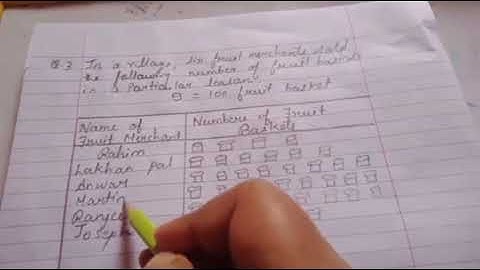 Q.3 In a village, six fruit merchants sold
the following number of fruit baskets
in a Particular season.
= 100 fruit basket
Name of Fruit Merchant
Numbers of Fruit Baskets
Rahim
Lakhan pal
Anwar
Martin
Joseph